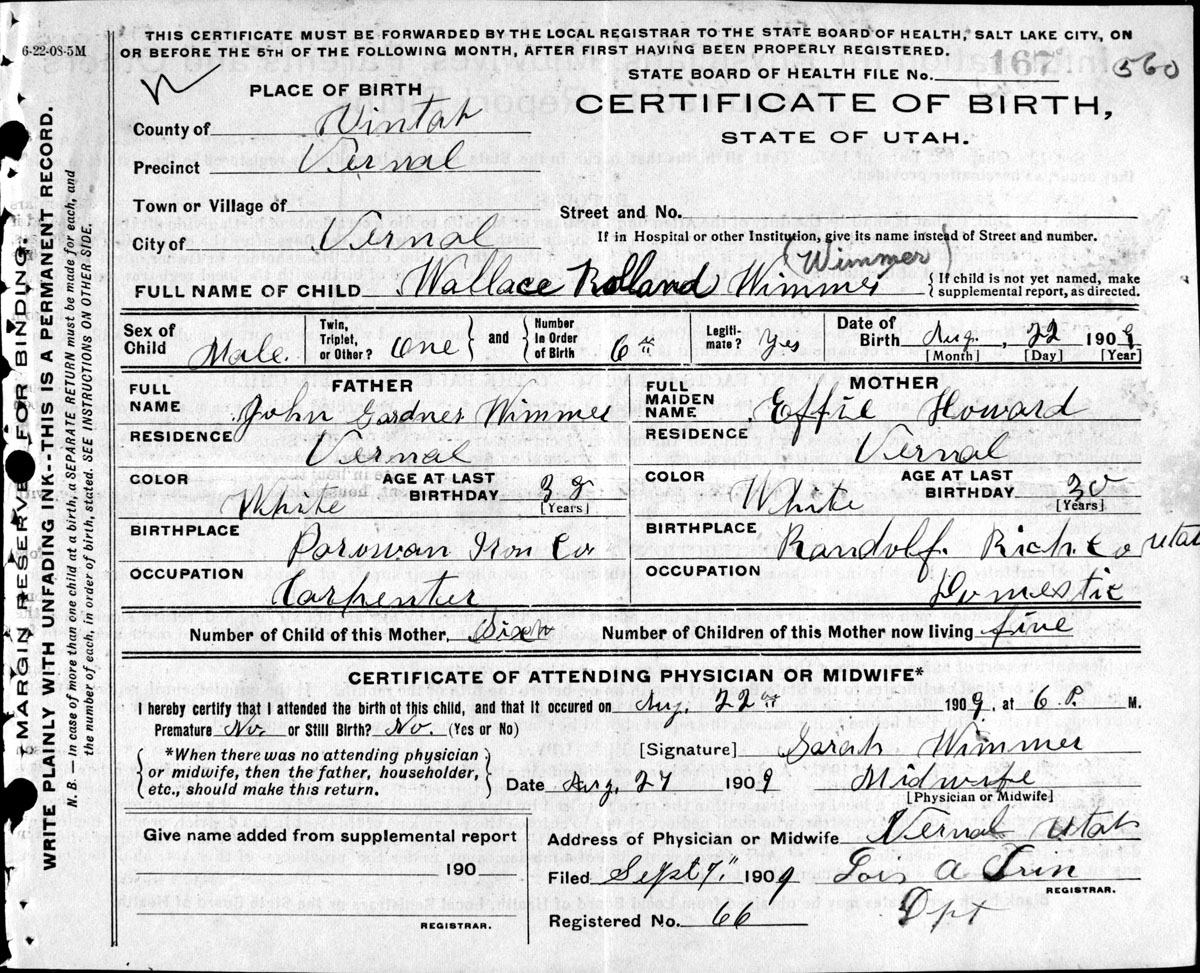 6-22-08-5M
THIS CERTIFICATE MUST BE FORWARDED BY THE LOCAL REGISTRAR TO THE STATE BOARD OF HEALTH, SALT LAKE CITY, ON
OR BEFORE THE 5TH OF THE FOLLOWING MONTH, AFTER FIRST HAVING BEEN PROPERLY REGISTERED.
STATE BOARD OF HEALTH FILE No. 167 560
CERTIFICATE OF BIRTH,
STATE OF UTAH.
PLACE OF BIRTH
County of Uintah
Precinct Vernal
Town or Village of
Street and No.
City of Vernal
If in Hospital or other Institution, give its name instead of Street and number.
(Wimmer)
FULL NAME OF CHILD Wallace Rolland Wimmer
{If child is not yet named, make
supplemental report, as directed.
Sex of Child Male. Twin, Triplet, or Other? One } and { Number in Order of Birth 6th Legiti-mate? Yes Date of Birth Aug. 22 1909
[Month] [Day] [Year]
FATHER
FULL NAME John Gardner Wimmer
RESIDENCE Vernal
COLOR White AGE AT LAST BIRTHDAY 38 [Years]
BIRTHPLACE Parowan Iron Co
OCCUPATION Carpenter
MOTHER
FULL MAIDEN NAME Effie Howard
RESIDENCE Vernal
COLOR White AGE AT LAST BIRTHDAY 30 [Years]
BIRTHPLACE Randolf. Rich. Co Utah
OCCUPATION Domestic
Number of Child of this Mother, Sixth Number of Children of this Mother now living five
CERTIFICATE OF ATTENDING PHYSICIAN OR MIDWIFE*
I hereby certify that I attended the birth of this child, and that it occured on Aug. 22nd 1909, at 6 P. M.
Premature No. or Still Birth? No. (Yes or No)
{*When there was no attending physician
or midwife, then the father, householder,
etc., should make this return.}
[Signature] Sarah Wimmer
Date Aug. 27 1909 Midwife
[Physician or Midwife]
Give name added from supplemental report
190
REGISTRAR.
Address of Physician or Midwife Vernal Utah
Filed Sept 7" 1909 Lois A
REGISTRAR.
Registered No. 66 Dpt
MARGIN RESERVED FOR BINDING.
WRITE PLAINLY WITH UNFADING INK--THIS IS A PERMANENT RECORD.
N. B. — In case of more than one child at a birth, a SEPARATE RETURN must be made for each, and
the number of each, in order of birth, stated. SEE INSTRUCTIONS ON OTHER SIDE.